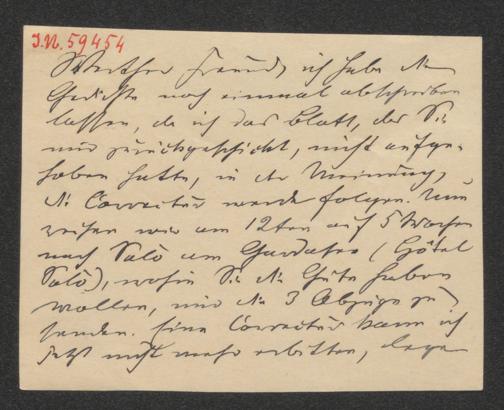 I.N. 59454
Werther Freund, ich habe die
Gedichte noch einmal abschreiben
lassen, da ich das Blatt, das Sie
mir zurückgeschickt, nicht aufge-
hoben hatte, in der Meinung,
die Correctur werde folgen. Nun
reisen wir am 12ten auf 5 Wochen
nach Salò am Gardasee (Hôtel
Salò), wohin Sie die Güte haben
wollen, mir die 3 Abzüge zu
senden. Eine Correctur kann ich
jetzt nicht mehr erbitten, lege